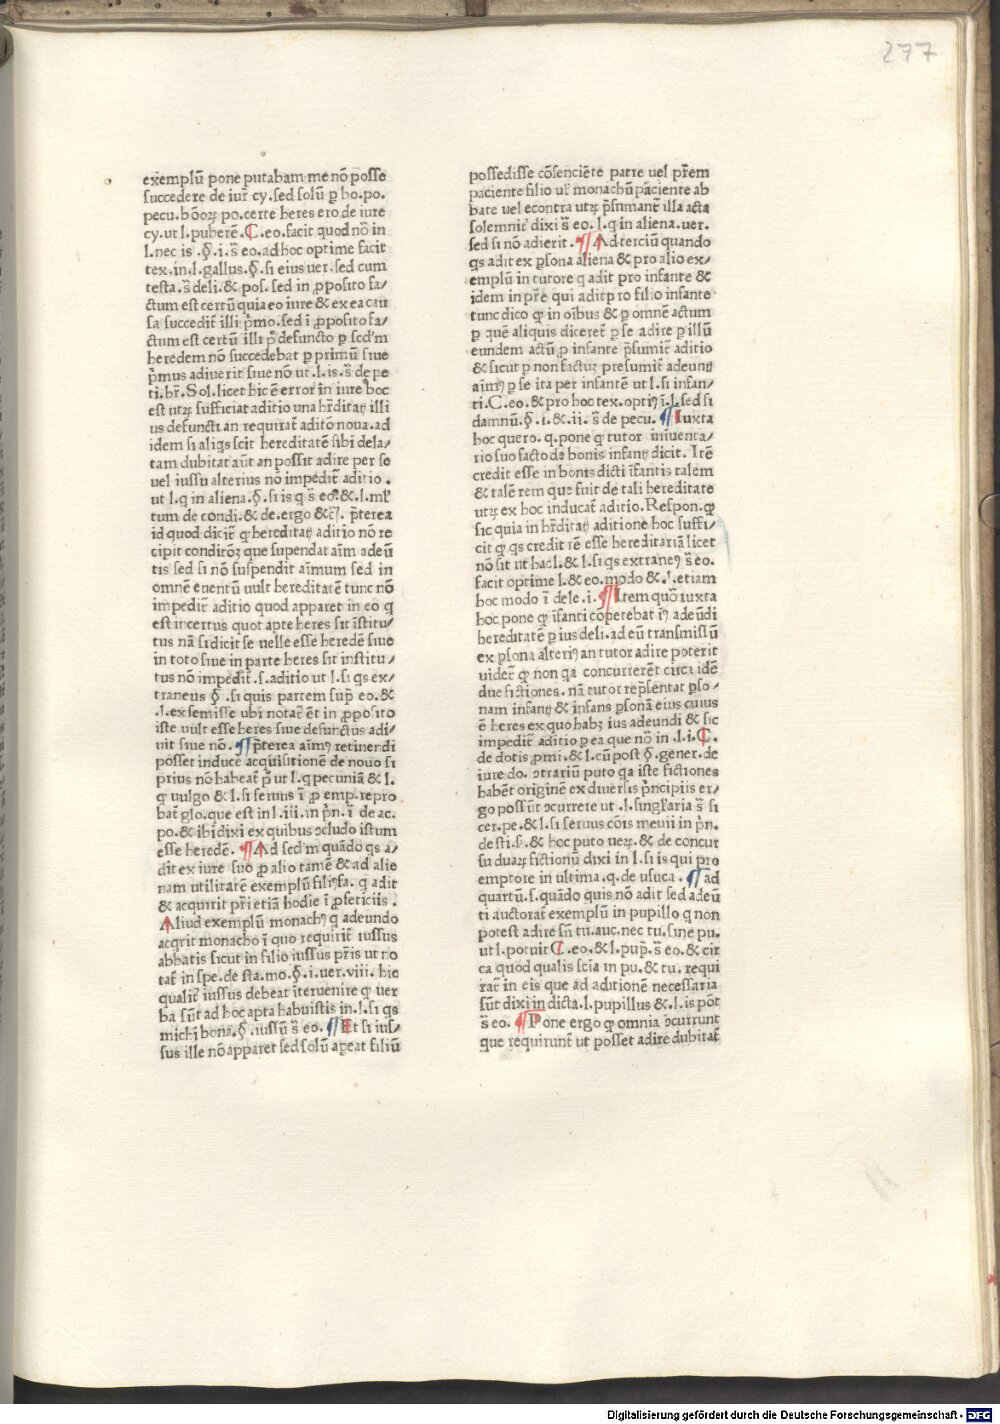 277
exẽmplũ pone putabam me nõ posse
succedere de iur̃ cy. sed solũ ꝑ bo. po.
pecu. bõoꝝ po. certe heres ero de iure
cy. ut l. puberẽ. C. eo. facit quod nõ in
l. nec is. §. i. s̃ eo. ad hoc optime facit
tex. in. l. gallus. §. si eius uer. sed cum
testa. s̃ deli. & pos. sed in ꝓposito fa/
ctum est certũ quia eo iure & ex ea cau
sa succedit̃ illi p̃mo. sed ĩ ꝓposito fa/
ctum est certũ illi p̃ defuncto ꝑ scd'm
heredem nõ succedebat ꝑ primũ siue
p̃mus adiuerit siue nõ ut. l. is. s̃ de pe
ti. hr̃. Sol. licet hic ẽ error in iure hoc
est utꝝ sufficiat aditio una hr̃ditatꝭ illi
us defuncti an requirat̃ aditõ noua. ad
idem si aliqs scit hereditatẽ sibi dela/
tam dubitat aũt an possit adire per se
uel iussu alterius nõ impedit̃ aditio.
ut l. q in aliena. §. si is q s̃ eo. & l. ml'
tum de condi. & de. ergo &c̃. p̃terea
id quod dicit̃ ꝙ hereditatꝭ aditio nõ re
cipit conditõꝫ que supendat aĩm adeũ
tis sed si nõ suspendit aĩmum sed in
omnẽ euentũ uult hereditatẽ tunc nõ
impedit̃ aditio quod apparet in eo q
est incertus quot apte heres sit ĩstitu/
tus nã si dicit se uelle esse heredẽ siue
in toto siue in parte heres sit institu/
tus nõ impedit̃. s. aditio ut l. si qs ex/
traneus §. si quis partem sup̃ eo. &
. l. ex semisse ubi notat̃ ẽt in ꝓposito
iste uult esse heres siue defunctus adi/
uit siue nõ. ¶ p̃terea aĩmꝰ retinendi
posset induce acquisitionẽ de nouo si
prius nõ habeat̃ p̃ ut l. q pecuniã & l.
ꝙ uulgo & l. si seruus ĩ ꝓ emp. repro
bat̃ glo. que est in l. iii. in pñ. ĩ de ac.
po. & ibi dixi ex quibus ɔcludo istum
esse heredẽ. ¶ Ad sed'm quãdo qs a/
dit ex iure suo ꝓ alio tamẽ & ad alie
nam utilitatẽ exemplũ filiꝰfa. q adit
& acquirit pr̃i etiã hodie ĩ ꝓfeticiis.
Aliud exemplũ monachꝰ q adeundo
acqrit monacho ĩ quo requirit̃ iussus
abbatis sicut in filio iussus pr̃is ut no
tat̃ in spe. de sta. mo. §. i. uer. viii. hic
qualit̃ iussus debeat ĩteruenire ꝙ uer
ba sũt ad hoc apta habuistis in. l. si qs
michi bona. §. iussũ s̃ eo. ¶ Et si ius/
sus ille nõ apparet sed solũ apeat filiũ
possedisse cõsenciẽte patre uel pr̃em
paciente filio ul' monachũ paciente ab
bate uel econtra utꝝ p̃sumant̃ illa acta
solemnit̃ dixi s̃ eo. l. q in aliena. uer.
sed si nõ adierit. ¶ Ad terciũ quando
qs adit ex ꝑsona aliena & pro alio ex/
emplũ in tutore q adit pro infante &
idem in pr̃e qui adit pro filio infante
tunc dico ꝙ in oibus & ꝑ omnẽ actum
ꝑ quẽ aliquis diceret̃ ꝑ se adire ꝑ illũ
eundem actũ ꝓ infante p̃sumit̃ aditio
& sicut ꝑ non factuꝫ presumit̃ adeuntꝭ
aĩmꝰ ꝑ se ita per infantẽ ut l. si infan/
ti. C. eo. & pro hoc tex. optiꝰ ĩ. l. sed si
damnũ. §. i. & ii. s̃ de pecu. ¶ Iuxta
hoc quero. q. pone ꝙ tutor inuenta/
rio suo facto de bonis infantꝭ dicit. Itẽ
credit esse in bonis dicti ĩfantis talem
& talẽ rem que fuit de tali hereditate
utꝝ ex hoc inducat̃ aditio. Respon. ꝙ
sic quia in hr̃ditatꝭ aditione hoc suffi/
cit ꝙ qs credit rẽ esse hereditariã licet
nõ sit ut hac l. & l. si qs extraneꝰ s̃ eo.
facit optime l. & eo. modo & . l. etiam
hoc modo ĩ dele. i. ¶ Item quõ iuxta
hoc pone ꝙ ĩfanti copetebat iꝰ adeũdi
hereditatẽ ꝑ ius deli. ad eũ transmissũ
ex ꝑsona alteriꝰ an tutor adire poterit
uidet̃ ꝙ non qa concurrerẽt circa idẽ
due fictiones. nã tutor repr̃sentat ꝑso/
nam infantꝭ & infans ꝑsonã eius cuius
ẽ heres ex quo habꝫ ius adeundi & sic
impedit̃ aditio ꝑ ea que nõ in. l. i. C.
de dotis ꝓmi. & l. cũ post §. gener. de
iure do. ɔtrariũ puto qa iste fictiones
habẽt originẽ ex diuersis p̃ncipiis er/
go possũt ɔcurrere ut. l. singl'aria s̃ si
cer. pe. & l. si seruus cõis meuii in pñ.
de sti. s. & hoc puto ueꝝ. & de concur
su duaꝝ fictionũ dixi in l. si is qui pro
emptore in ultima. q. de usuca. ¶ ad
quartũ. s. quãdo quis nõ adit sed adeũ
ti auctorat̃ exemplũ in pupillo q non
potest adire sñ tu. auc. nec tu. sine pu.
ut l. potuit C. eo. & l. pup̃. s̃ eo. & cir
ca quod qualis scĩa in pu. & tu. requi
rat̃ in eis que ad aditionẽ necessaria
sũt dixi in dicta. l. pupillus & l. is põt
s̃ eo. ¶ Pone ergo ꝙ omnia ɔcurrunt
que requirunt̃ ut posset adire dubitat̃
Digitalisierung gefördert durch die Deutsche Forschungsgemeinschaft - DFG